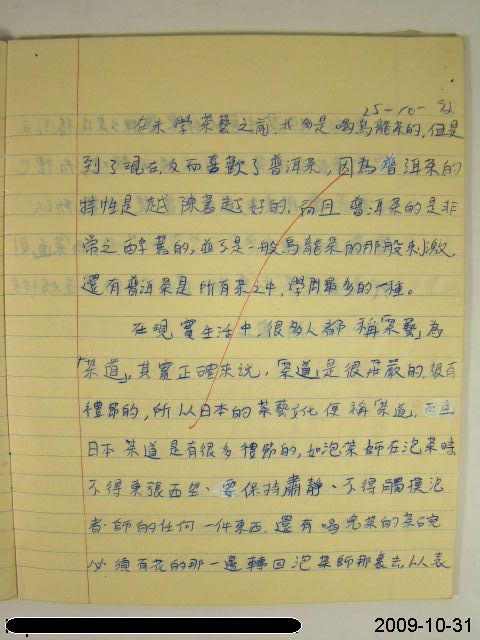 25-10-92
在未學茶藝之前我多是喝烏龍茶的,但是
到了現在反而喜歡了普洱茶,因為普洱茶的
特性是越陳舊越好的,而且普洱茶的是非
常之醇舊的,並不是一般烏龍茶的那般刺激,
還有普洱茶是所有茶之中,學問最多的一種。
在現實生活中,很多人都稱「茶藝」為
「茶道」,其實正確來說,「茶道」是很莊嚴的,很有
禮節的,所以日本的茶藝文化便稱「茶道」,而且
日本茶道是有很多禮節的,如泡茶師在泡茶時
不得東張西望、要保持肅靜、不得觸摸泡
者師的任何一件東西,還有喝完茶的茶碗
必須有花的那一邊轉回泡茶師那裏去,以表
2009-10-31